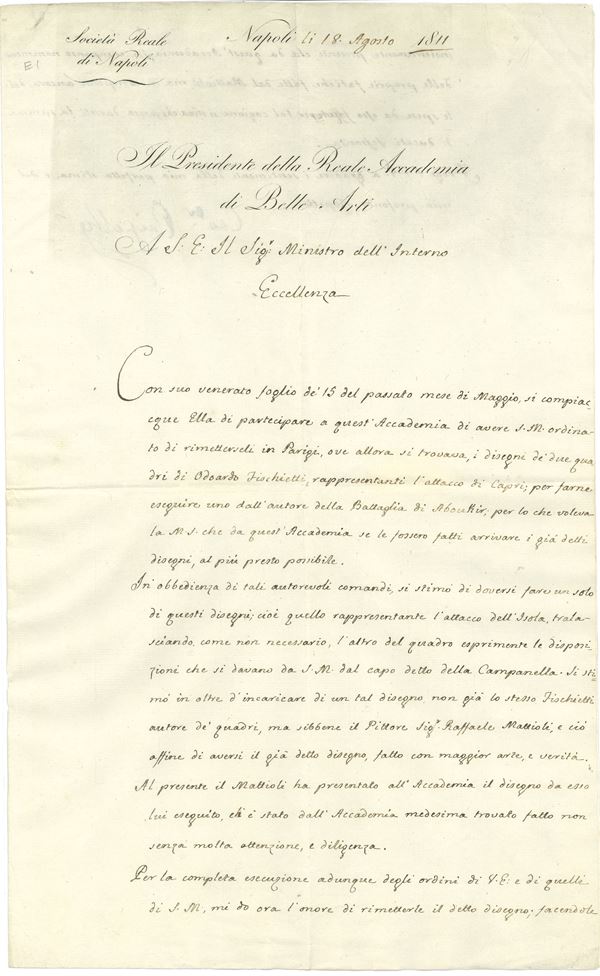 Società Reale
di Napoli
E1
Napoli li 18. Agosto 1811
Il Presidente della Reale Accademia
di Belle Arti
A S: E: Il Sigr. Ministro dell'Interno
Eccellenza
Con suo venerato foglio de' 15 del passato mese di Maggio, si compiac=
cque Ella di partecipare a quest'Accademia di avere S. M. ordina=
to di rimetterseli in Parigi, ove allora si trovava, i disegni de' due qua
dri di Odoardo Fischietti, rappresentanti l'attacco di Capri; per farne
eseguire uno dall'autore della Battaglia di Aboukir; per lo che voleva
la M. S. che da quest'Accademia se le fossero fatti arrivare i già detti
disegni, al più presto possibile.
In obbedienza di tali autorevoli comandi, si stimò di doversi fare un solo
di questi disegni; cioè quello rappresentante l'attacco dell'Isola, trala=
sciando, come non necessario, l'altro del quadro esprimente le disposi=
zioni che si davano da S. M. dal capo detto della Campanella. Si sti=
mò in oltre d'incaricare di un tal disegno, non già lo stesso Fischietti
autore de' quadri, ma sibbene il Pittore Sigr. Raffaele Mattioli, e ciò
affine di aversi il già detto disegno, fatto con maggior arte, e verità.
Al presente il Mattioli ha presentato all'Accademia il disegno da esso
lui eseguito, ch'è stato dall'Accademia medesima trovato fatto non
senza molta attenzione, e diligenza.
Per la completa esecuzione adunque degli ordini di V. E. e di quelli
di S. M, mi do ora l'onore di rimetterle il detto disegno; facendole